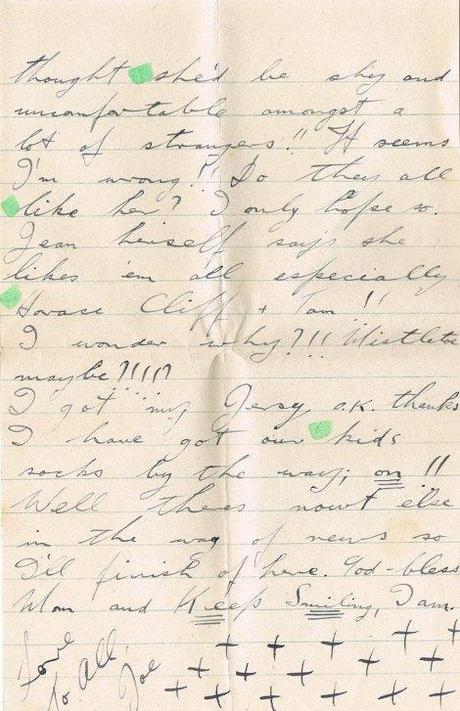 thought she'd be shy and
uncomfortable amongst a
lot of strangers!! It seems
I'm wrong!! Do they all
like her? I only hope so.
Jean herself says she
likes 'em all especially
Horace Cliff + Tom!!
I wonder why?!!! Mistletoe
maybe?!!!!?
I got my Jersy, o.k. thanks
I have got our kids
socks by the way; on!!
Well theres nowt else
in the way of news so
I'll finish of here. God-bless
Mom and Keep Smiling, I am.
Love
to All,
Joe
+ + + + + + + + + + + + + + + + +